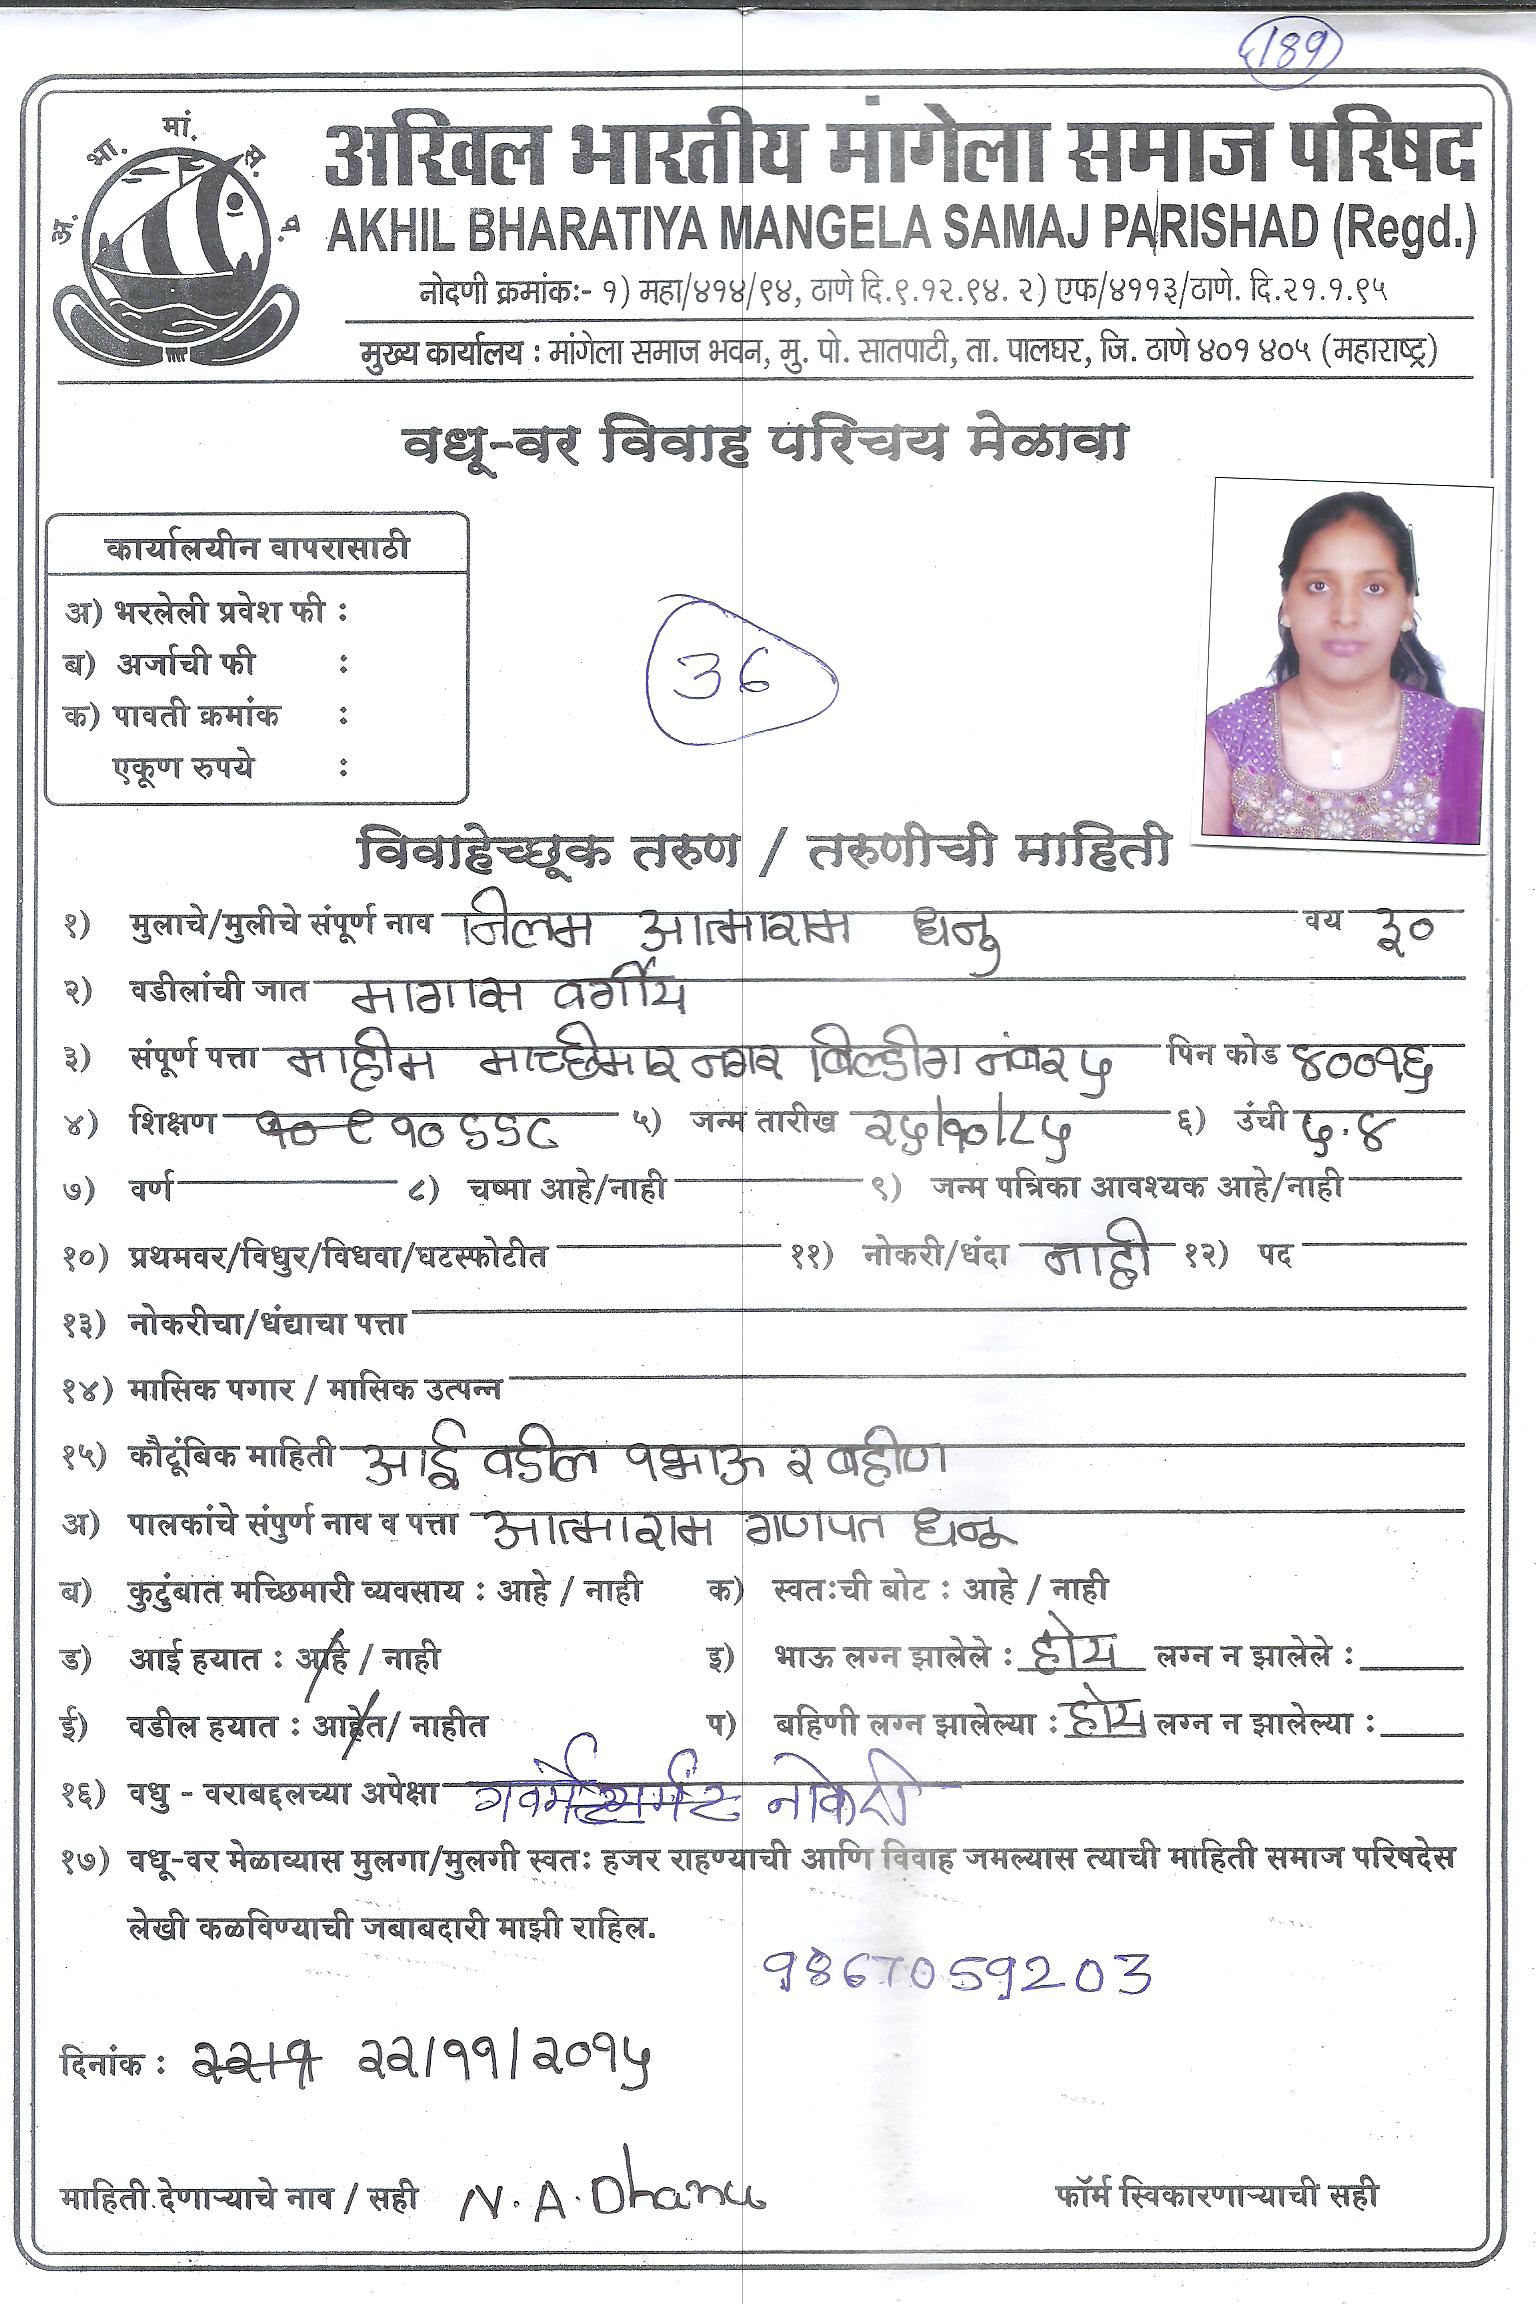 189
अ. भा. मां. स. प.
अखिल भारतीय मांगेला समाज परिषद
AKHIL BHARATIYA MANGELA SAMAJ PARISHAD (Regd.)
नोदणी क्रमांकः- १) महा/४१४/९४, ठाणे दि.९.१२.९४. २) एफ/४११३/ठाणे. दि.२१.१.९५
मुख्य कार्यालय : मांगेला समाज भवन, मु. पो. सातपाटी, ता. पालघर, जि. ठाणे ४०१ ४०५ (महाराष्ट्र)
वधू-वर विवाह परिचय मेळावा
कार्यालयीन वापरासाठी
अ) भरलेली प्रवेश फी :
ब) अर्जाची फी :
क) पावती क्रमांक :
एकूण रुपये :
36
विवाहेच्छूक तरुण / तरुणीची माहिती
१) मुलाचे/मुलीचे संपूर्ण नाव निलम आत्माराम धनु वय ३०
२) वडीलांची जात मागास वर्गीय
३) संपूर्ण पत्ता माहीम माच्छीमार नगर बिल्डींग नंबर ५ पिन कोड ४००१६
४) शिक्षण १० ८ १० SSC ५) जन्म तारीख २५/१०/८५ ६) उंची ५.४
७) वर्ण ८) चष्मा आहे/नाही ९) जन्म पत्रिका आवश्यक आहे/नाही
१०) प्रथमवर/विधुर/विधवा/घटस्फोटीत ११) नोकरी/धंदा नाही १२) पद
१३) नोकरीचा/धंद्याचा पत्ता
१४) मासिक पगार / मासिक उत्पन्न
१५) कौटूंबिक माहिती आई वडील १ भाऊ २ बहीण
अ) पालकांचे संपुर्ण नाव व पत्ता आत्माराम गणपत धनू
ब) कुटुंबात मच्छिमारी व्यवसाय : आहे / नाही क) स्वतःची बोट : आहे / नाही
ड) आई हयात : आहे / नाही इ) भाऊ लग्न झालेले : होय लग्न न झालेले :
ई) वडील हयात : आहेत/ नाहीत प) बहिणी लग्न झालेल्या : होय लग्न न झालेल्या :
१६) वधु - वराबद्दलच्या अपेक्षा नोकरी
१७) वधू-वर मेळाव्यास मुलगा/मुलगी स्वतः हजर राहण्याची आणि विवाह जमल्यास त्याची माहिती समाज परिषदेस
लेखी कळविण्याची जबाबदारी माझी राहिल.
9867059203
दिनांक : २२/१ २२/११/२०१५
माहिती देणाऱ्याचे नाव / सही N. A. Dhanu फॉर्म स्विकारणाऱ्याची सही